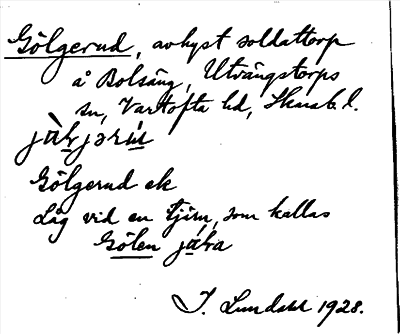 Gölgerud, avhyst soldattorp
å Bolsäng, Utvängstorps
sn, Vartofta hd, Skarab. l.
Gölgerud ek
Låg vid en tjärn, som kallas
Gölen
I. Lundahl 1928.